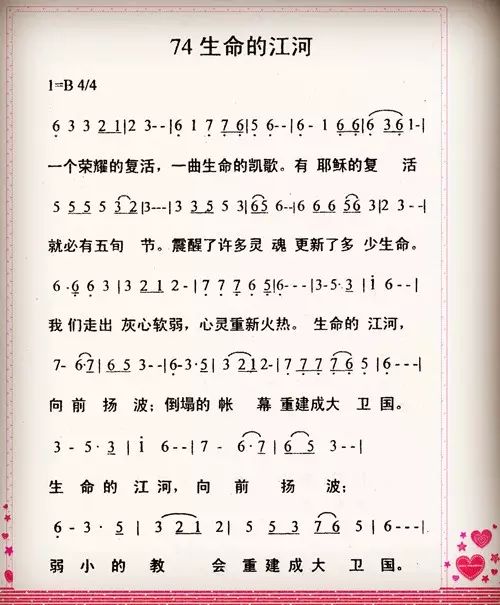 74 生命的江河
1=B 4/4
6 3 3 2 1|2 3--|6 1 7 7 6|5 6--|6- 1 6 6|6 3 6 1-|
一个荣耀的复活，一曲生命的凯歌。有 耶稣的复 活
5 5 5 5 3 2|3---|3 3 5 5 3|6 5 6--|6 6 6 5 6 3|2 3--|
就必有五旬 节。震醒了许多灵 魂 更新了多 少生命。
6 · 6 6 3 |3 2 1 2 -|7 7 7 6 5|6---|3-5·3 |i 6--|
我 们走出 灰心软弱，心灵重新火热。 生命的 江河，
7- 6·7| 6 5 3--|6-3·5| 3 2 1 2-|7 7 7 7 6 5 |6---|
向 前 扬 波；倒塌的 帐 幕 重建成大 卫国。
3 - 5·3 | i 6--|7 - 6·7| 6 5 3--|
生 命的 江 河， 向 前 扬 波；
6 - 3· 5 | 3 2 1 2| 5 5 3 7 6 5|6---|
弱 小 的 教 会 重 建 成 大 卫 国。